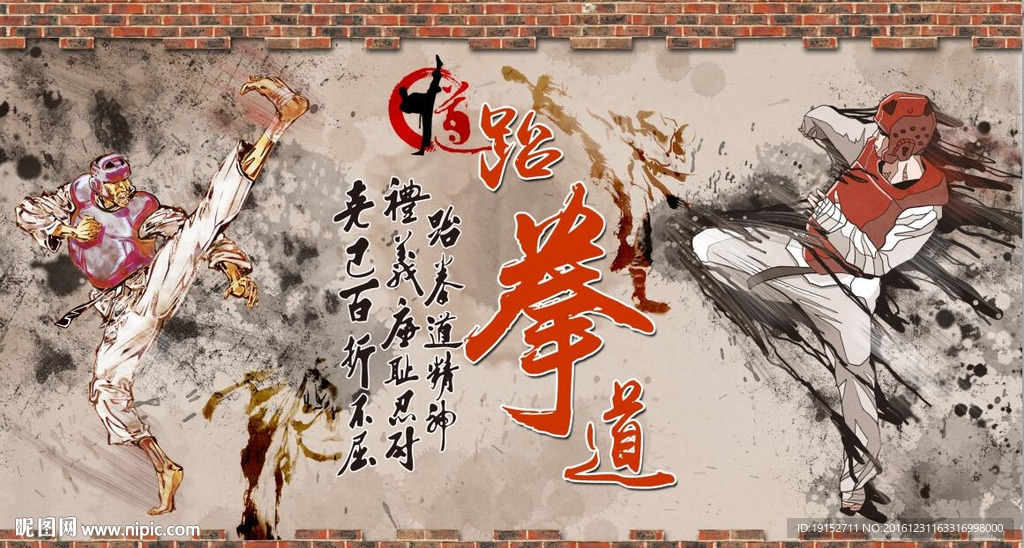 道
跆
拳
道
跆拳道精神
禮義廉耻忍耐
克己百折不屈
昵图网 www.nipic.com
ID:19152711 NO:20161231163316998000